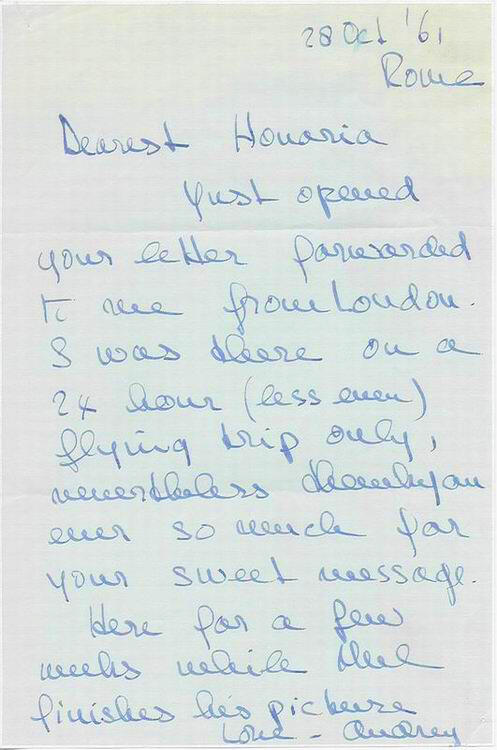 28 Oct '61
Rome
Dearest Honoria
Just opened
your letter forwarded
to me from London.
I was there on a
24 hour (less even)
flying trip only,
nevertheless thankyou
ever so much for
your sweet message.
Here for a few
weeks while Mel
finishes his picture
Love - Audrey